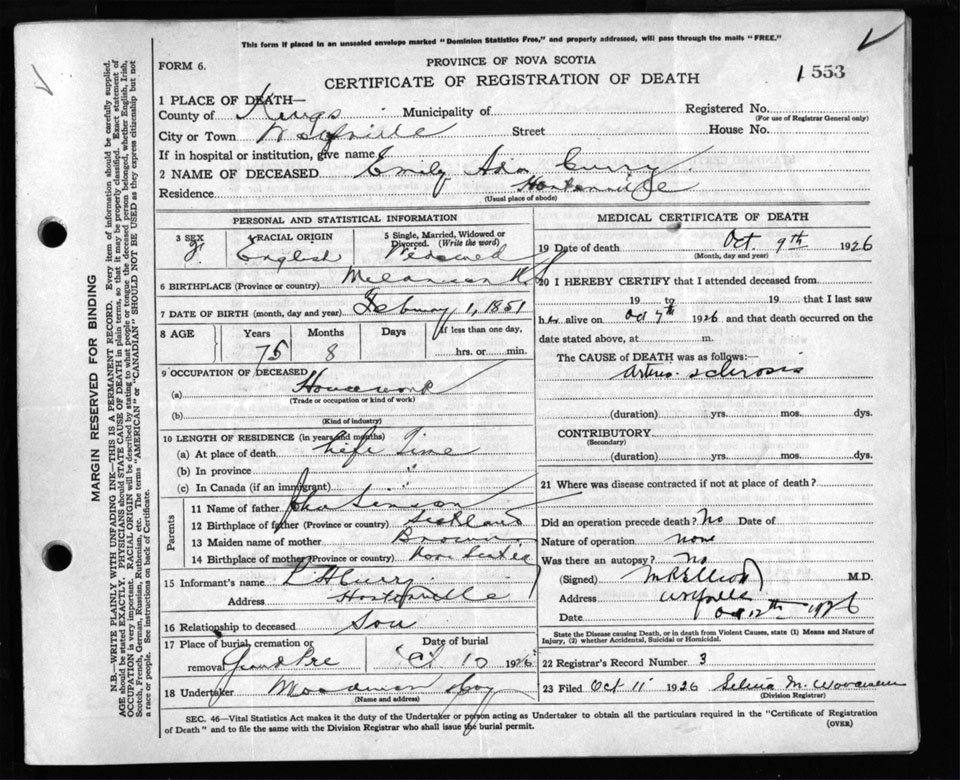 This form if placed in an unsealed envelope marked "Dominion Statistics Free," and properly addressed, will pass through the mails "FREE."
FORM 6.
PROVINCE OF NOVA SCOTIA
CERTIFICATE OF REGISTRATION OF DEATH
1553
1 PLACE OF DEATH—
County of Kings Municipality of Registered No.
(For use of Registrar General only)
City or Town Wolfville Street House No.
If in hospital or institution, give name
2 NAME OF DECEASED Emily Ada Curry
Residence Hortonville
(Usual place of abode)
PERSONAL AND STATISTICAL INFORMATION
3 SEX F. 4 RACIAL ORIGIN English 5 Single, Married, Widowed or Divorced. (Write the word) Widowed
6 BIRTHPLACE (Province or country) N.S.
7 DATE OF BIRTH (month, day and year) Febuary 1, 1851
8 AGE Years 75 Months 8 Days If less than one day, hrs. or min.
9 OCCUPATION OF DECEASED
(a) Housework
(Trade or occupation or kind of work)
(b)
(Kind of industry)
10 LENGTH OF RESIDENCE (in years and months)
(a) At place of death Life Time
(b) In province "
(c) In Canada (if an immigrant)
Parents
11 Name of father John
12 Birthplace of father (Province or country) Scotland
13 Maiden name of mother Brown
14 Birthplace of mother (Province or country) Nova Scotia
15 Informant's name Curry
Address Hortonville
16 Relationship to deceased Son
17 Place of burial, cremation or removal Grand Pre Date of burial Oct 10 1926
18 Undertaker Woodman
(Name and address)
MEDICAL CERTIFICATE OF DEATH
19 Date of death Oct. 9th 1926
(Month, day and year)
20 I HEREBY CERTIFY that I attended deceased from
19 to 19 that I last saw
her alive on Oct 7th 1926 and that death occurred on the
date stated above, at m.
The CAUSE of DEATH was as follows:—
Arterio-sclerosis
(duration) yrs. mos. dys.
CONTRIBUTORY
(Secondary)
(duration) yrs. mos. dys.
21 Where was disease contracted if not at place of death?
Did an operation precede death? No Date of
Nature of operation none
Was there an autopsy? No
(Signed) M R Elliott M.D.
Address Wolfville
Date Oct 12th 1926
State the Disease causing Death, or in death from Violent Causes, state (1) Means and Nature of Injury, (2) whether Accidental, Suicidal or Homicidal.
22 Registrar's Record Number 3
23 Filed Oct 11 1926 M.
(Division Registrar)
SEC. 46—Vital Statistics Act makes it the duty of the Undertaker or person acting as Undertaker to obtain all the particulars required in the "Certificate of Registration
of Death" and to file the same with the Division Registrar who shall issue the burial permit.
(OVER)
MARGIN RESERVED FOR BINDING
N.B.—WRITE PLAINLY WITH UNFADING INK—THIS IS A PERMANENT RECORD. Every item of information should be carefully supplied.
AGE should be stated EXACTLY. PHYSICIANS should STATE CAUSE OF DEATH in plain terms, so that it may be properly classified. Exact statement of
OCCUPATION is very important. RACIAL ORIGIN will be described by stating to what people or tongue the deceased person belonged, whether English, Irish,
Scotch, French, German, Russian, Ruthenian, etc. The terms "AMERICAN" or "CANADIAN" SHOULD NOT BE USED as they express citizenship but not
a race or people. See instructions on back of Certificate.